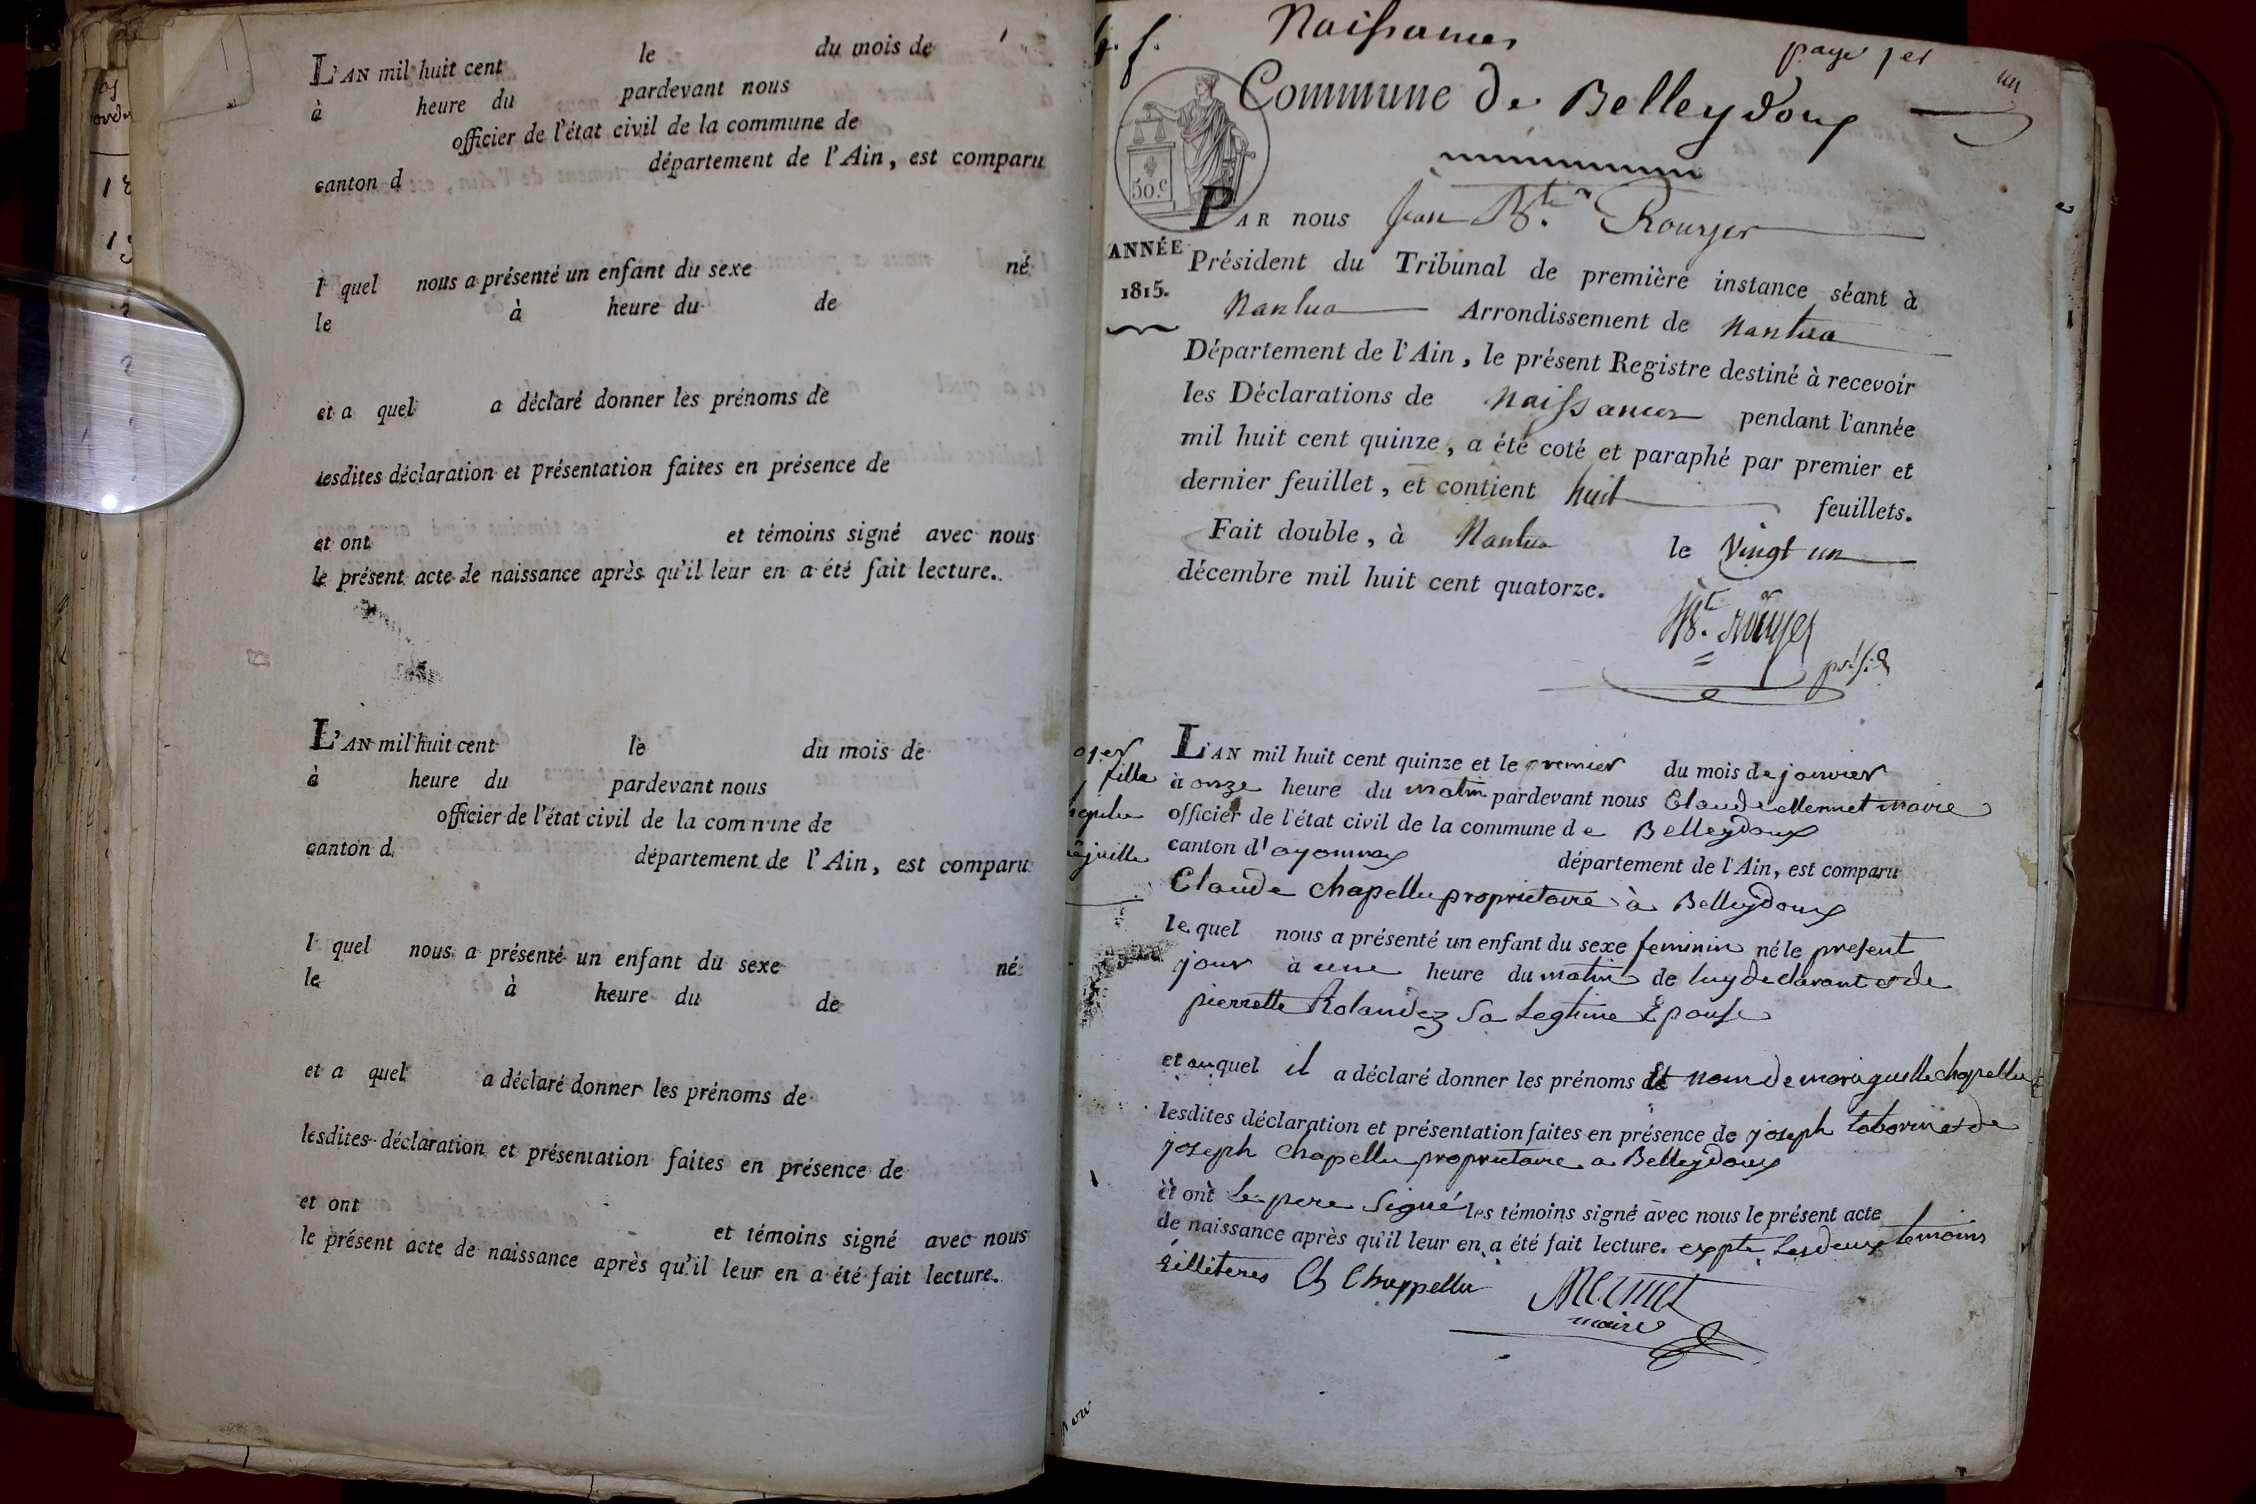 L'AN mil huit cent le du mois de
à heure du pardevant nous
officier de l'état civil de la commune de
canton d département de l'Ain, est comparu
l quel nous a présenté un enfant du sexe né
le à heure du de
et a quel a déclaré donner les prénoms de
lesdites déclaration et présentation faites en présence de
et ont et témoins signé avec nous
le présent acte de naissance après qu'il leur en a été fait lecture.
L'AN mil huit cent le du mois de
à heure du pardevant nous
officier de l'état civil de la commune de
canton d département de l'Ain, est comparu
l quel nous a présenté un enfant du sexe né
le à heure du de
et a quel a déclaré donner les prénoms de
lesdites déclaration et présentation faites en présence de
et ont et témoins signé avec nous
le présent acte de naissance après qu'il leur en a été fait lecture.
Naissances
page 1er un
Commune de Belleydoux
50.c
PAR nous Jean Bte Rouyer
ANNÉE
1815.
Président du Tribunal de première instance séant à
Nantua Arrondissement de Nantua
Département de l'Ain, le présent Registre destiné à recevoir
les Déclarations de Naissances pendant l'année
mil huit cent quinze, a été coté et paraphé par premier et
dernier feuillet, et contient huit feuillets.
Fait double, à Nantua le Vingt un
décembre mil huit cent quatorze.
Bt. Rouyer
présid
L'AN mil huit cent quinze et le premier du mois de janvier
à onze heure du matin pardevant nous Claude Mermet maire
officier de l'état civil de la commune de Belleydoux
canton d'oyonnax département de l'Ain, est comparu
Claude Chapellu proprietaire à Belleydoux
le quel nous a présenté un enfant du sexe feminin né le present
jour à une heure du matin de luy declarant et de
pierrette Rolandez sa Legtime Epouse
et auquel il a déclaré donner les prénoms et nom de chapellu
lesdites déclaration et présentation faites en présence de joseph taborin et de
joseph Chapellu proprietaire a Belleydoux
et ont Le pere Signé les témoins signé avec nous le présent acte
de naissance après qu'il leur en a été fait lecture. expte Les deux temoins
illiteres Ch Chappellu
Mermet
maire